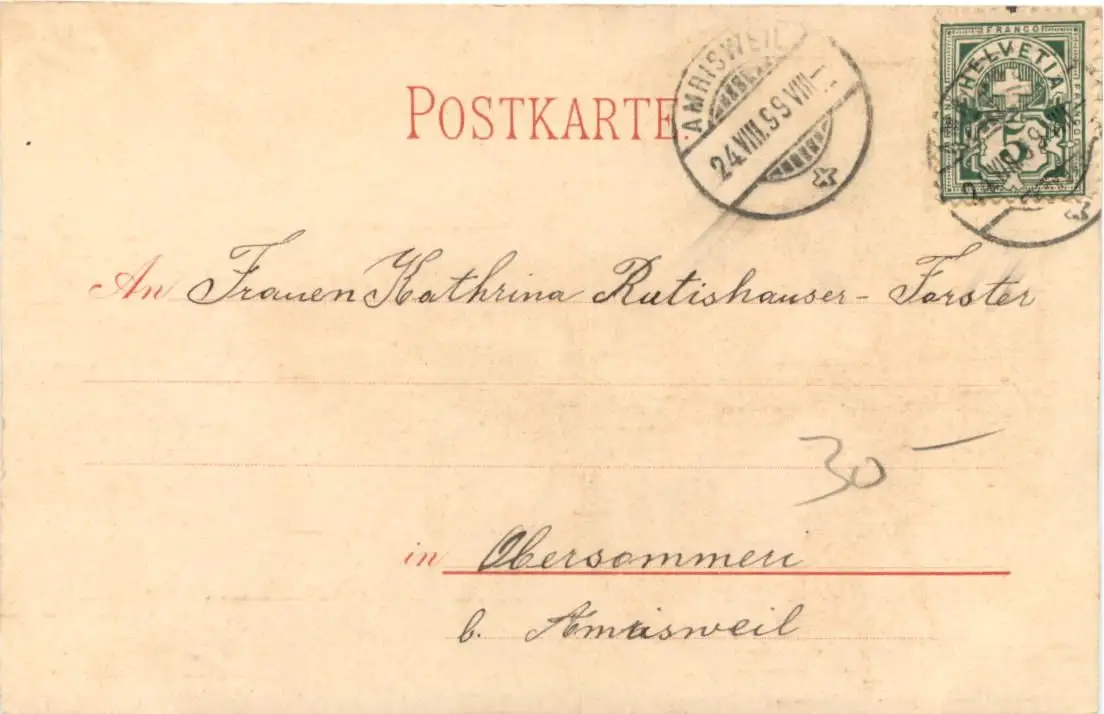 POSTKARTE
AMRISWEIL
24.VIII.99 VIII
FRANCO
HELVETIA
FRANCO
5
An Frauen Kathrina Rutishauser - Forster
30 -
in Obersommeri
b. Amrisweil